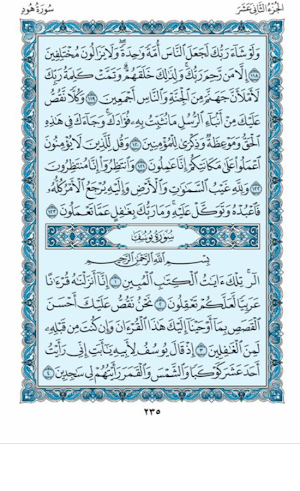 الجزء الثاني عشر
سورة هود
وَلَوْ شَاءَ رَبُّكَ لَجَعَلَ النَّاسَ أُمَّةً وَاحِدَةً وَلَا يَزَالُونَ مُخْتَلِفِينَ
١١٨ إِلَّا مَن رَّحِمَ رَبُّكَ وَلِذَٰلِكَ خَلَقَهُمْ وَتَمَّتْ كَلِمَةُ رَبِّكَ
لَأَمْلَأَنَّ جَهَنَّمَ مِنَ الْجِنَّةِ وَالنَّاسِ أَجْمَعِينَ ١١٩ وَكُلًّا نَّقُصُّ
عَلَيْكَ مِنْ أَنبَاءِ الرُّسُلِ مَا نُثَبِّتُ بِهِ فُؤَادَكَ وَجَاءَكَ فِي هَٰذِهِ
الْحَقُّ وَمَوْعِظَةٌ وَذِكْرَىٰ لِلْمُؤْمِنِينَ ١٢٠ وَقُل لِّلَّذِينَ لَا يُؤْمِنُونَ
اعْمَلُوا عَلَىٰ مَكَانَتِكُمْ إِنَّا عَامِلُونَ ١٢١ وَانتَظِرُوا إِنَّا مُنتَظِرُونَ
١٢٢ وَلِلَّهِ غَيْبُ السَّمَاوَاتِ وَالْأَرْضِ وَإِلَيْهِ يُرْجَعُ الْأَمْرُ كُلُّهُ
فَاعْبُدْهُ وَتَوَكَّلْ عَلَيْهِ وَمَا رَبُّكَ بِغَافِلٍ عَمَّا تَعْمَلُونَ ١٢٣
سورة يوسف
بِسْمِ اللَّهِ الرَّحْمَٰنِ الرَّحِيمِ
الر تِلْكَ آيَاتُ الْكِتَابِ الْمُبِينِ ١ إِنَّا أَنزَلْنَاهُ قُرْآنًا
عَرَبِيًّا لَّعَلَّكُمْ تَعْقِلُونَ ٢ نَحْنُ نَقُصُّ عَلَيْكَ أَحْسَنَ
الْقَصَصِ بِمَا أَوْحَيْنَا إِلَيْكَ هَٰذَا الْقُرْآنَ وَإِن كُنتَ مِن قَبْلِهِ
لَمِنَ الْغَافِلِينَ ٣ إِذْ قَالَ يُوسُفُ لِأَبِيهِ يَا أَبَتِ إِنِّي رَأَيْتُ
أَحَدَ عَشَرَ كَوْكَبًا وَالشَّمْسَ وَالْقَمَرَ رَأَيْتُهُمْ لِي سَاجِدِينَ ٤
٢٣٥